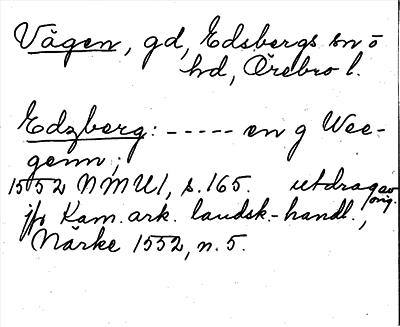 Vägen, gd, Edsbergs sn o
hd, Örebro l.
Edzberg: ----- en g Wee-
genn;
1552 NMU1, s. 165. utdrag av
orig.
jfr Kam. ark. landsk.-handl.,
Närke 1552, n. 5.